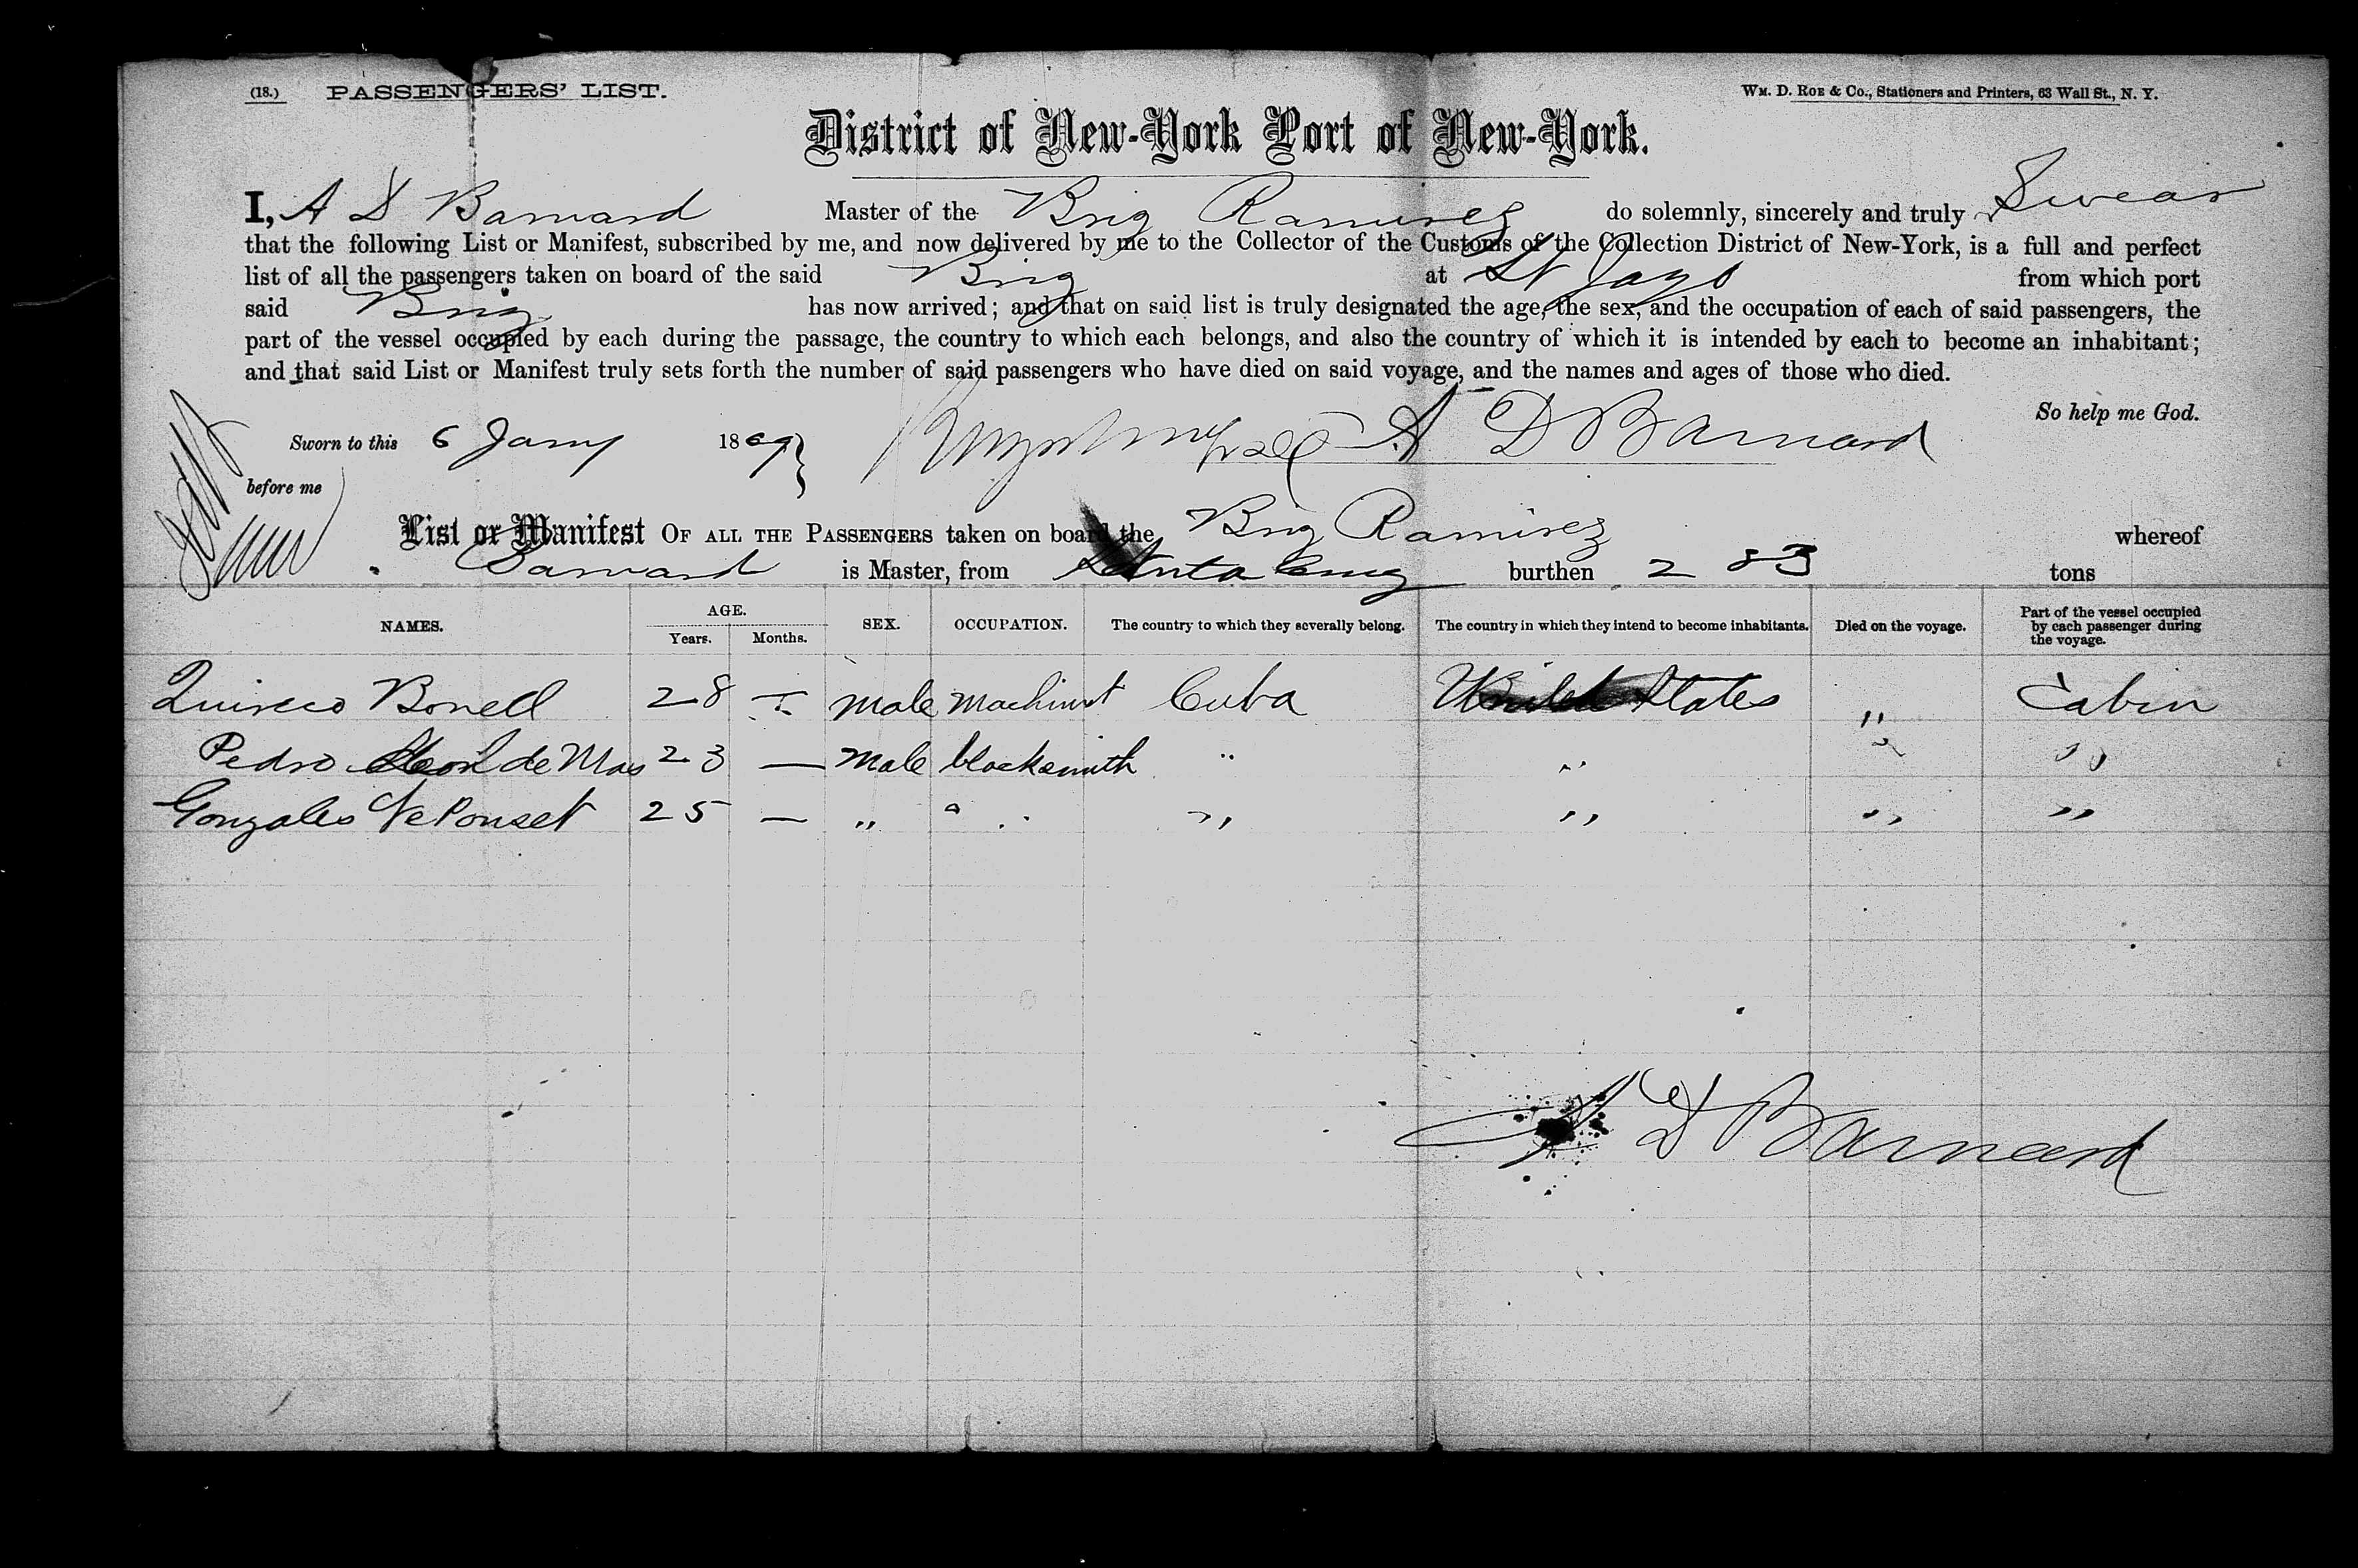 (18.) PASSENGERS' LIST. Wm. D. Roe & Co., Stationers and Printers, 63 Wall St., N. Y.
District of New-York Port of New-York.
I, A D Barnard Master of the Brig Ramirez do solemnly, sincerely and truly Swear
that the following List or Manifest, subscribed by me, and now delivered by me to the Collector of the Customs of the Collection District of New-York, is a full and perfect
list of all the passengers taken on board of the said Brig at St Jago from which port
said Brig has now arrived; and that on said list is truly designated the age, the sex, and the occupation of each of said passengers, the
part of the vessel occupied by each during the passage, the country to which each belongs, and also the country of which it is intended by each to become an inhabitant;
and that said List or Manifest truly sets forth the number of said passengers who have died on said voyage, and the names and ages of those who died.
So help me God.
Sworn to this 6 Jany 1869 A D Barnard
before me
List or Manifest OF ALL THE PASSENGERS taken on board the Brig Ramirez whereof
Barnard is Master, from Santa Cruz burthen 283 tons
NAMES. AGE. Years. Months. SEX. OCCUPATION. The country to which they severally belong. The country in which they intend to become inhabitants. Died on the voyage. Part of the vessel occupied by each passenger during the voyage.
Bonell 28 — male machinist Cuba United States " Cabin
Pedro de Mas 23 — male blacksmith " " " "
Gonzales 25 — " " " " " "
A D Barnard